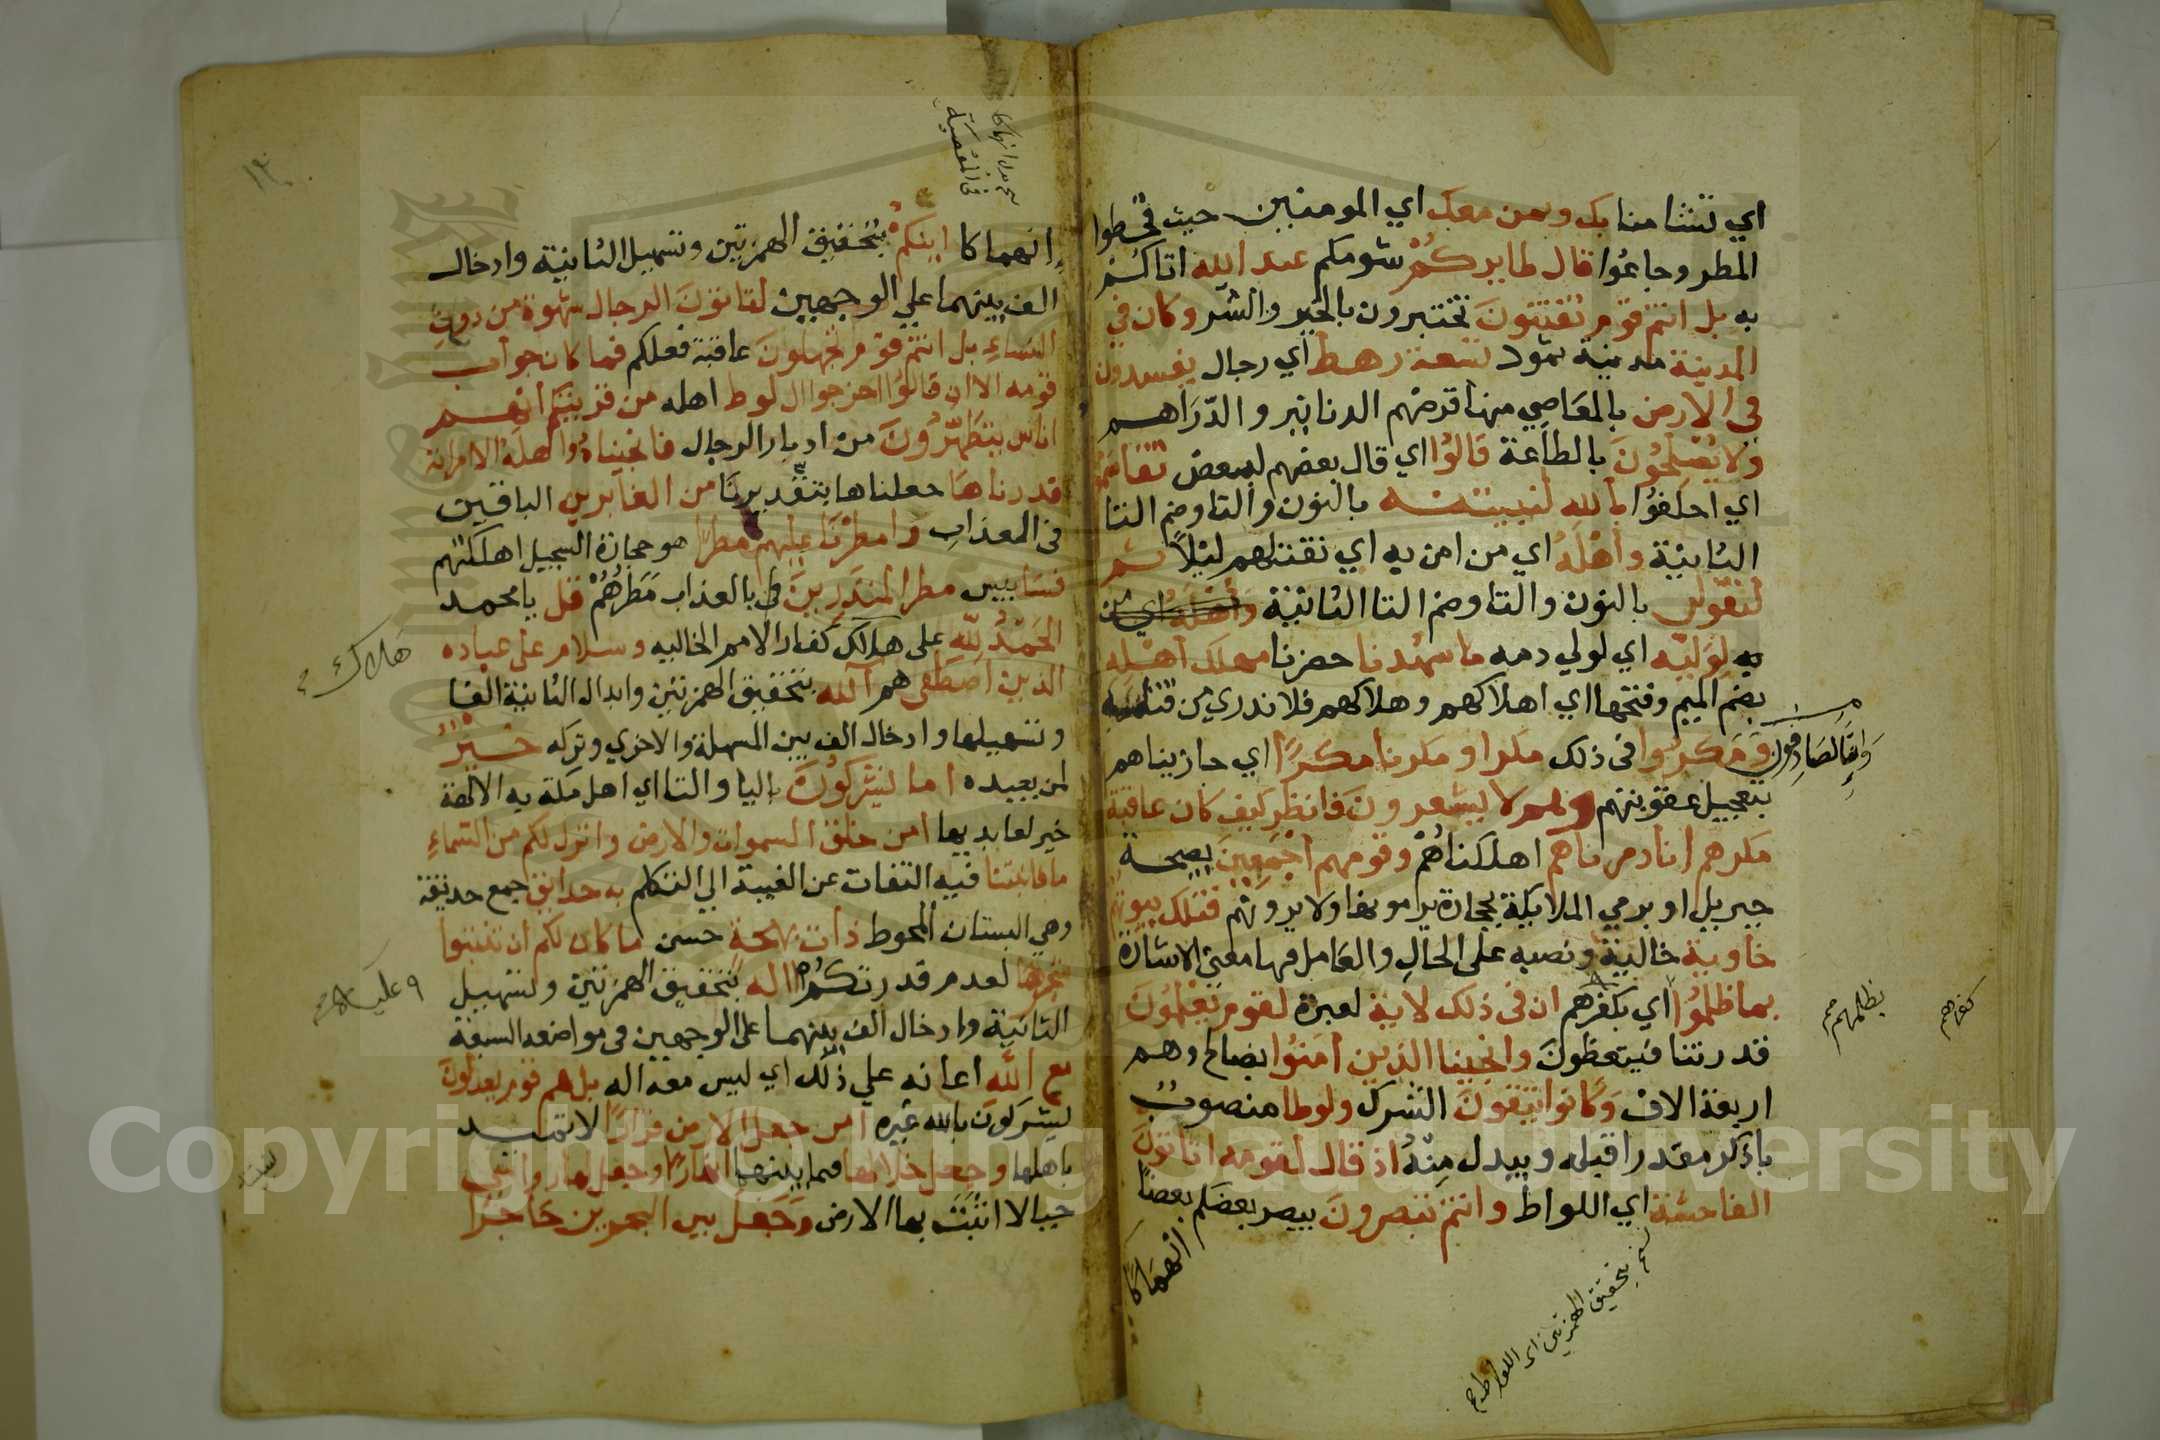 اي تشامنا بك وبمن معك اي المومنين حيث قحطوا
المطر وجاعوا قال طايركم شومكم عند الله اتاكم
به بل انتم قوم تفتنون تختبرون بالخير والشر وكان في
المدينة مدينة ثمود تسعة رهط اي رجال يفسدون
في الارض بالمعاصي منها قرضهم الدنانير والدراهم
ولا يصلحون بالطاعة قالوا اي قال بعضهم لبعض تقاسموا
اي احلفوا بالله لنبيتنه بالنون والتا وضم التا
الثانية واهله اي من امن به اي نقتلهم ليلا ثم
لنقولن بالنون والتا وضم التا الثانية واهله اي من
به لوليه اي لولي دمه ما شهدنا حضرنا مهلك اهله
بضم الميم وفتحها اي اهلاكهم وهلاكهم فلا ندري من قتله
وانا لصادقون
ومكروا في ذلك مكرا ومكرنا مكرا اي جازيناهم
بتعجيل عقوبتهم وهم لا يشعرون فانظر كيف كان عاقبة
مكرهم انا دمرناهم اهلكناهم وقومهم اجمعين بصيحة
جبريل او برمي الملايكة بحجارة يرامونها ولا يرونهم فتلك بيوتهم
خاوية خالية ونصبه على الحال والعامل فيها معنى الاشارة
بما ظلموا اي بكفرهم ان في ذلك لاية لعبرة لقوم يعلمون
بظلمهم
كفرهم
قدرتنا فيتعظون وانجينا الذين امنوا بصالح وهم
اربعة الاف وكانوا يتقون الشرك ولوطا منصوب
باذكر مقدرا قبله ويبدل منه اذ قال لقومه اتاتون
الفاحشة اي اللواط وانتم تبصرون يبصر بعضكم بعضا
انهماكا
بتحقيق الهمزتين اي اللواط
في المعصية
انهماكا اينكم بتحقيق الهمزتين وتسهيل الثانية وادخال
الف بينهما علي الوجهين لتاتون الرجال شهوة من دون
النساء بل انتم قوم تجهلون عاقبة فعلكم فما كان جواب
قومه الا ان قالوا اخرجوا ال لوط اهله من قريتكم انهم
اناس يتطهرون من ادبار الرجال فانجيناه واهله الا امراته
قدرناها جعلناها بتقديرنا من الغابرين الباقين
في العذاب وامطرنا عليهم مطرا هو حجارة السجيل اهلكتهم
فسا بيس مطر المنذرين بالعذاب مطرهم قل يا محمد
الحمد لله على هلاك كفار الامم الخالية وسلام على عباده
هلاك
الذين اصطفى هم آلله بتحقيق الهمزتين وابدال الثانية الفا
وتسهيلها وادخال الف بين المسهلة والاخري وتركه خير
لمن يعبده اما يشركون باليا والتا اي اهل مكة به الالهة
خير لعابديها امن خلق السموات والارض وانزل لكم من السماء
ما فانبتنا فيه التفات عن الغيبة الي التكلم به حدايق جمع حديقة
وهي البستان المحوط ذات بهجة حسن ما كان لكم ان تنبتوا
شجرها لعدم قدرتكم االه بتحقيق الهمزتين وتسهيل
الثانية وادخال الف بينهما على الوجهين في مواضعه السبعة
مع الله اعانه علي ذلك اي ليس معه اله بل هم قوم يعدلون
يشركون بالله غيره امن جعل الارض قرارا لا تميد
باهلها وجعل خلالها فيما بينها انهارا وجعل لها رواسي
جبالا اثبت بها الارض وجعل بين البحرين حاجزا
Copyright © King Saud University